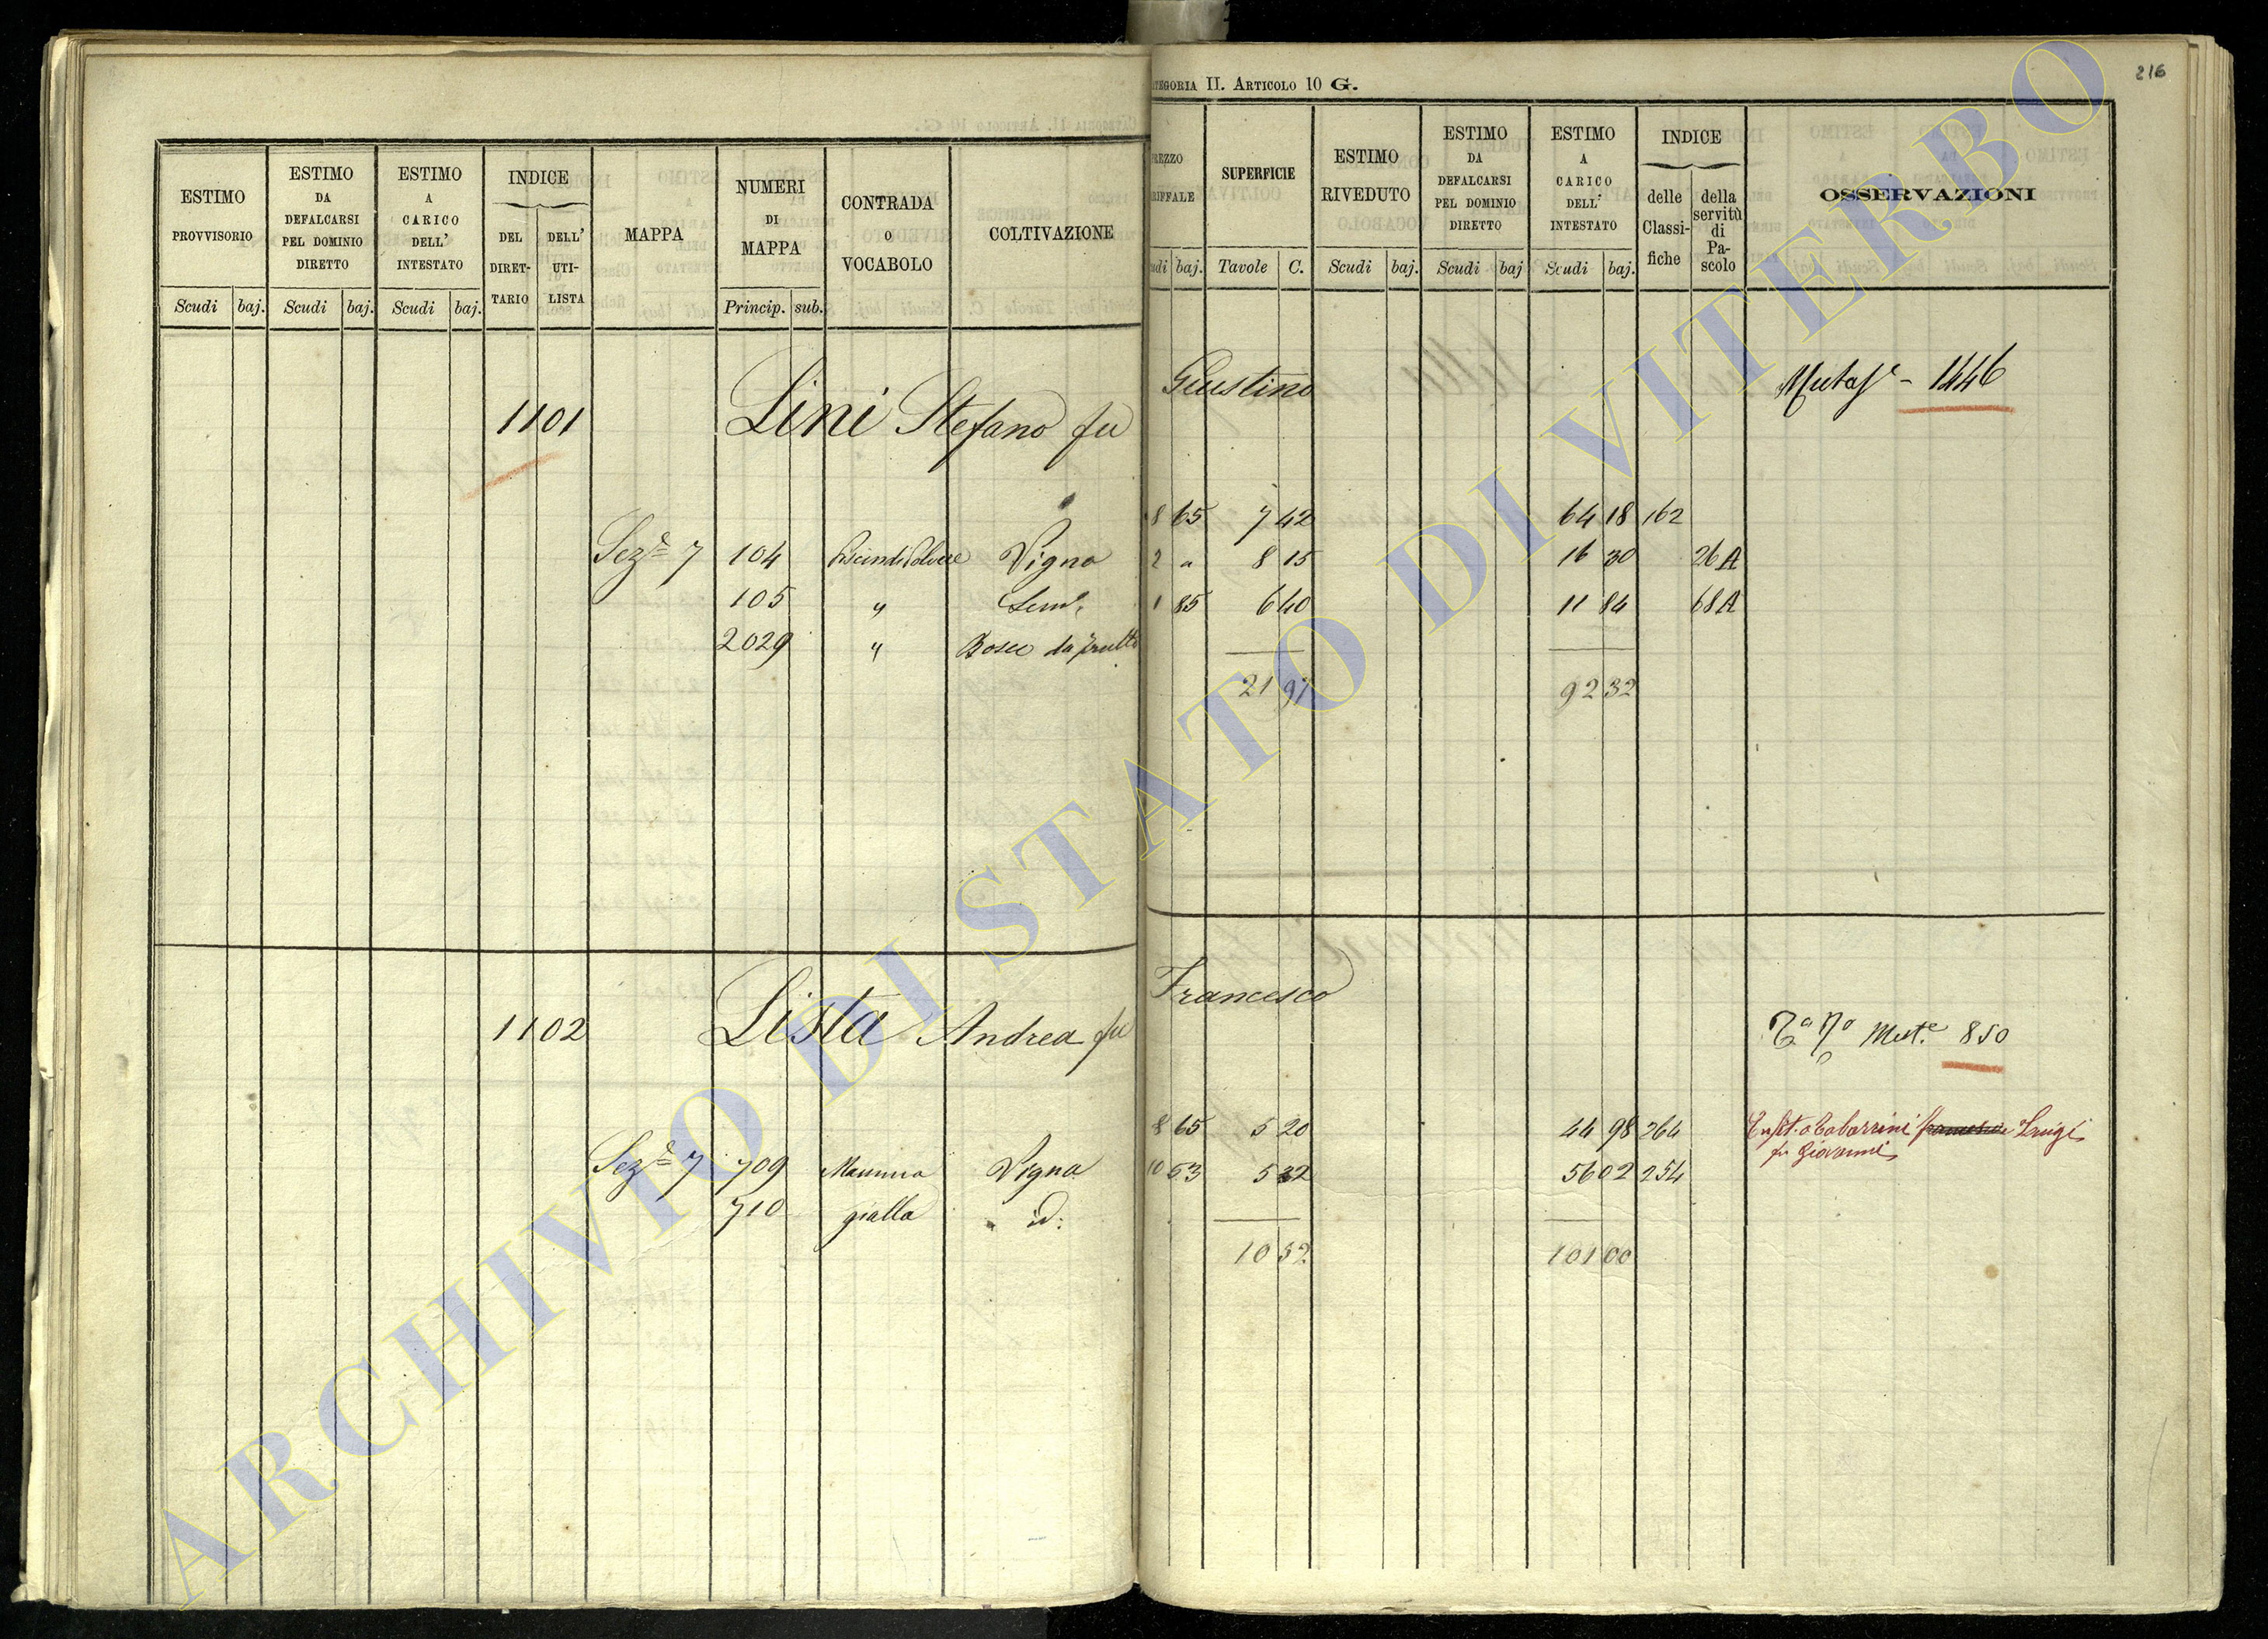 216
CATEGORIA II. ARTICOLO 10 G.
ESTIMO PROVVISORIO
Scudi baj.
ESTIMO DA DEFALCARSI PEL DOMINIO DIRETTO
Scudi baj.
ESTIMO A CARICO DELL' INTESTATO
Scudi baj.
INDICE
DEL DIRET-TARIO
DELL' UTI-LISTA
MAPPA
NUMERI DI MAPPA
Princip. sub.
CONTRADA O VOCABOLO
COLTIVAZIONE
REZZO RIFFALE
udi baj.
SUPERFICIE
Tavole C.
ESTIMO RIVEDUTO
Scudi baj.
ESTIMO DA DEFALCARSI PEL DOMINIO DIRETTO
Scudi baj
ESTIMO A CARICO DELL' INTESTATO
Scudi baj.
INDICE
delle Classi-fiche
della servitù di Pa-scolo
OSSERVAZIONI
1101 Lini Stefano fu Giustino
1446
Sez.e 7 104 Vigna 8 65 7 42 64 18 162
105 " Sem. 2 " 8 15 16 30 26 A
2029 " Bosco da frutto 1 85 6 40 11 84 68 A
21 97 92 32
1102 Lista Andrea fu Francesco
850
Sez.e 7 709 Mamma Vigna 8 65 5 20 44 98 264
710 gialla id: 10 53 5 32 56 02 254
10 52 101 00
Enfit. a Tabarrini Luigi
fu Giovanni
ARCHIVIO DI STATO DI VITERBO